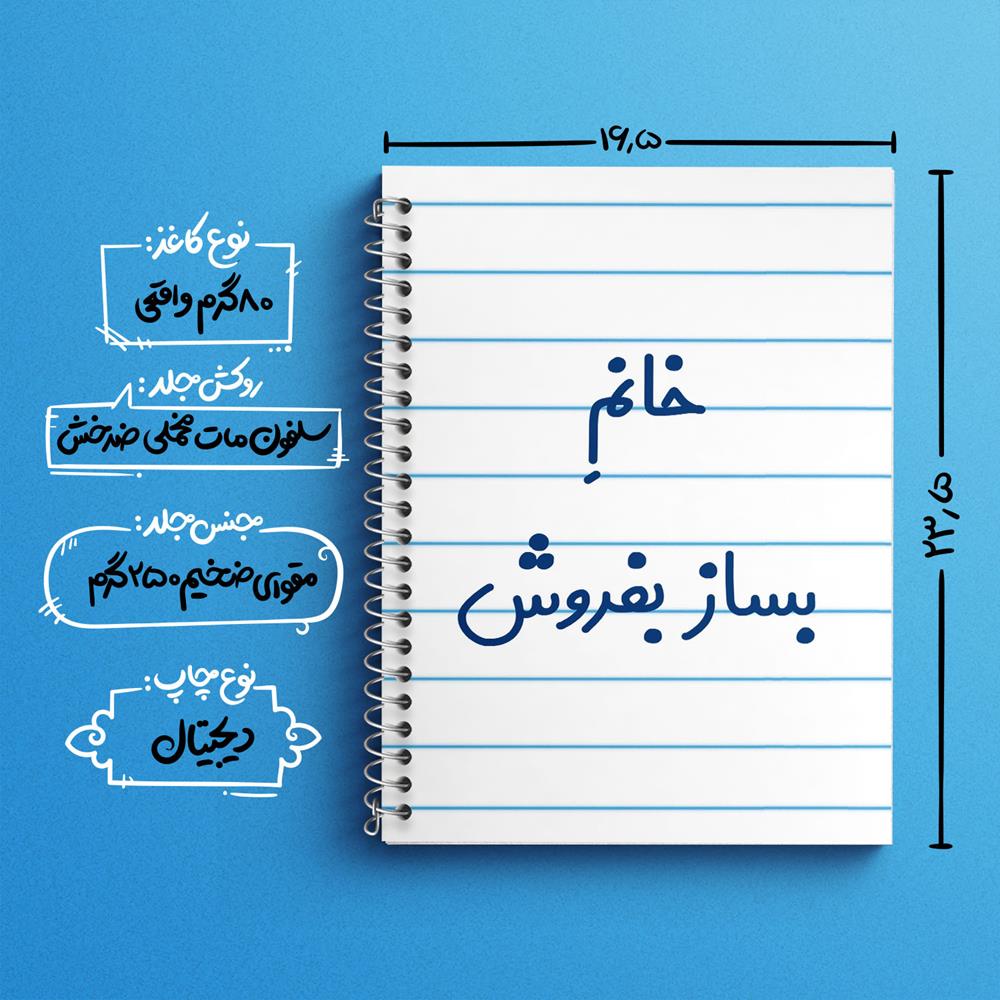 ۱۶٫۵
۲۳٫۵
نوع کاغذ:
۸۰ گرم واقعی
روکش جلد:
سلفون مات مخملی ضدخش
جنس جلد:
مقوای ضخیم ۲۵۰ گرم
نوع چاپ:
دیجیتال
خانمِ
بساز بفروش